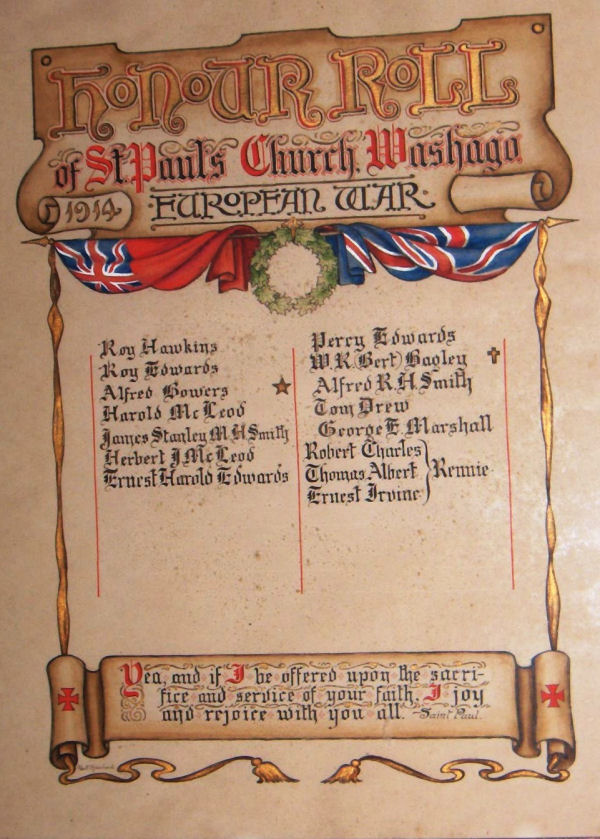 Honour Roll
of St. Paul's Church, Washago
1914 European War
Roy Hawkins
Roy Edwards
Alfred Bowers
Harold McLeod
James Stanley M.H. Smith
Herbert J McLeod
Ernest Harold Edwards
Percy Edwards
W.R.(Bert) Bagley
Alfred R.H. Smith
Tom Drew
George E. Marshall
Robert Charles
Thomas Albert Rennie
Ernest Irvine
Yea, and if I be offered upon the sacri-
fice and service of your faith, I joy
and rejoice with you all. ~Saint Paul.